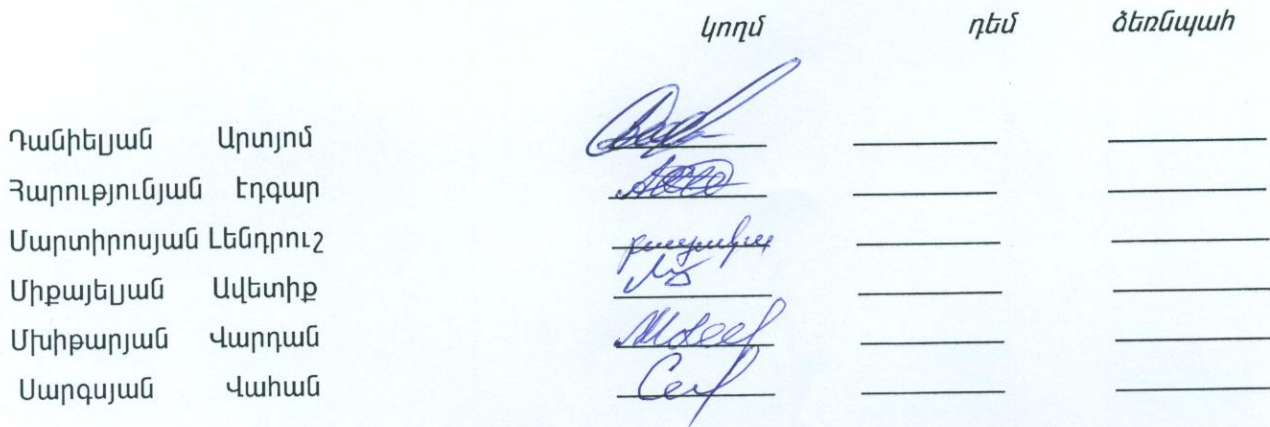 կողմ դեմ ձեռնպահ
Դանիելյան Արտյոմ
Հարությունյան Էդգար
Մարտիրոսյան Լենդրուշ բացակա
Միքայելյան Ավետիք
Մխիթարյան Վարդան
Սարգսյան Վահան